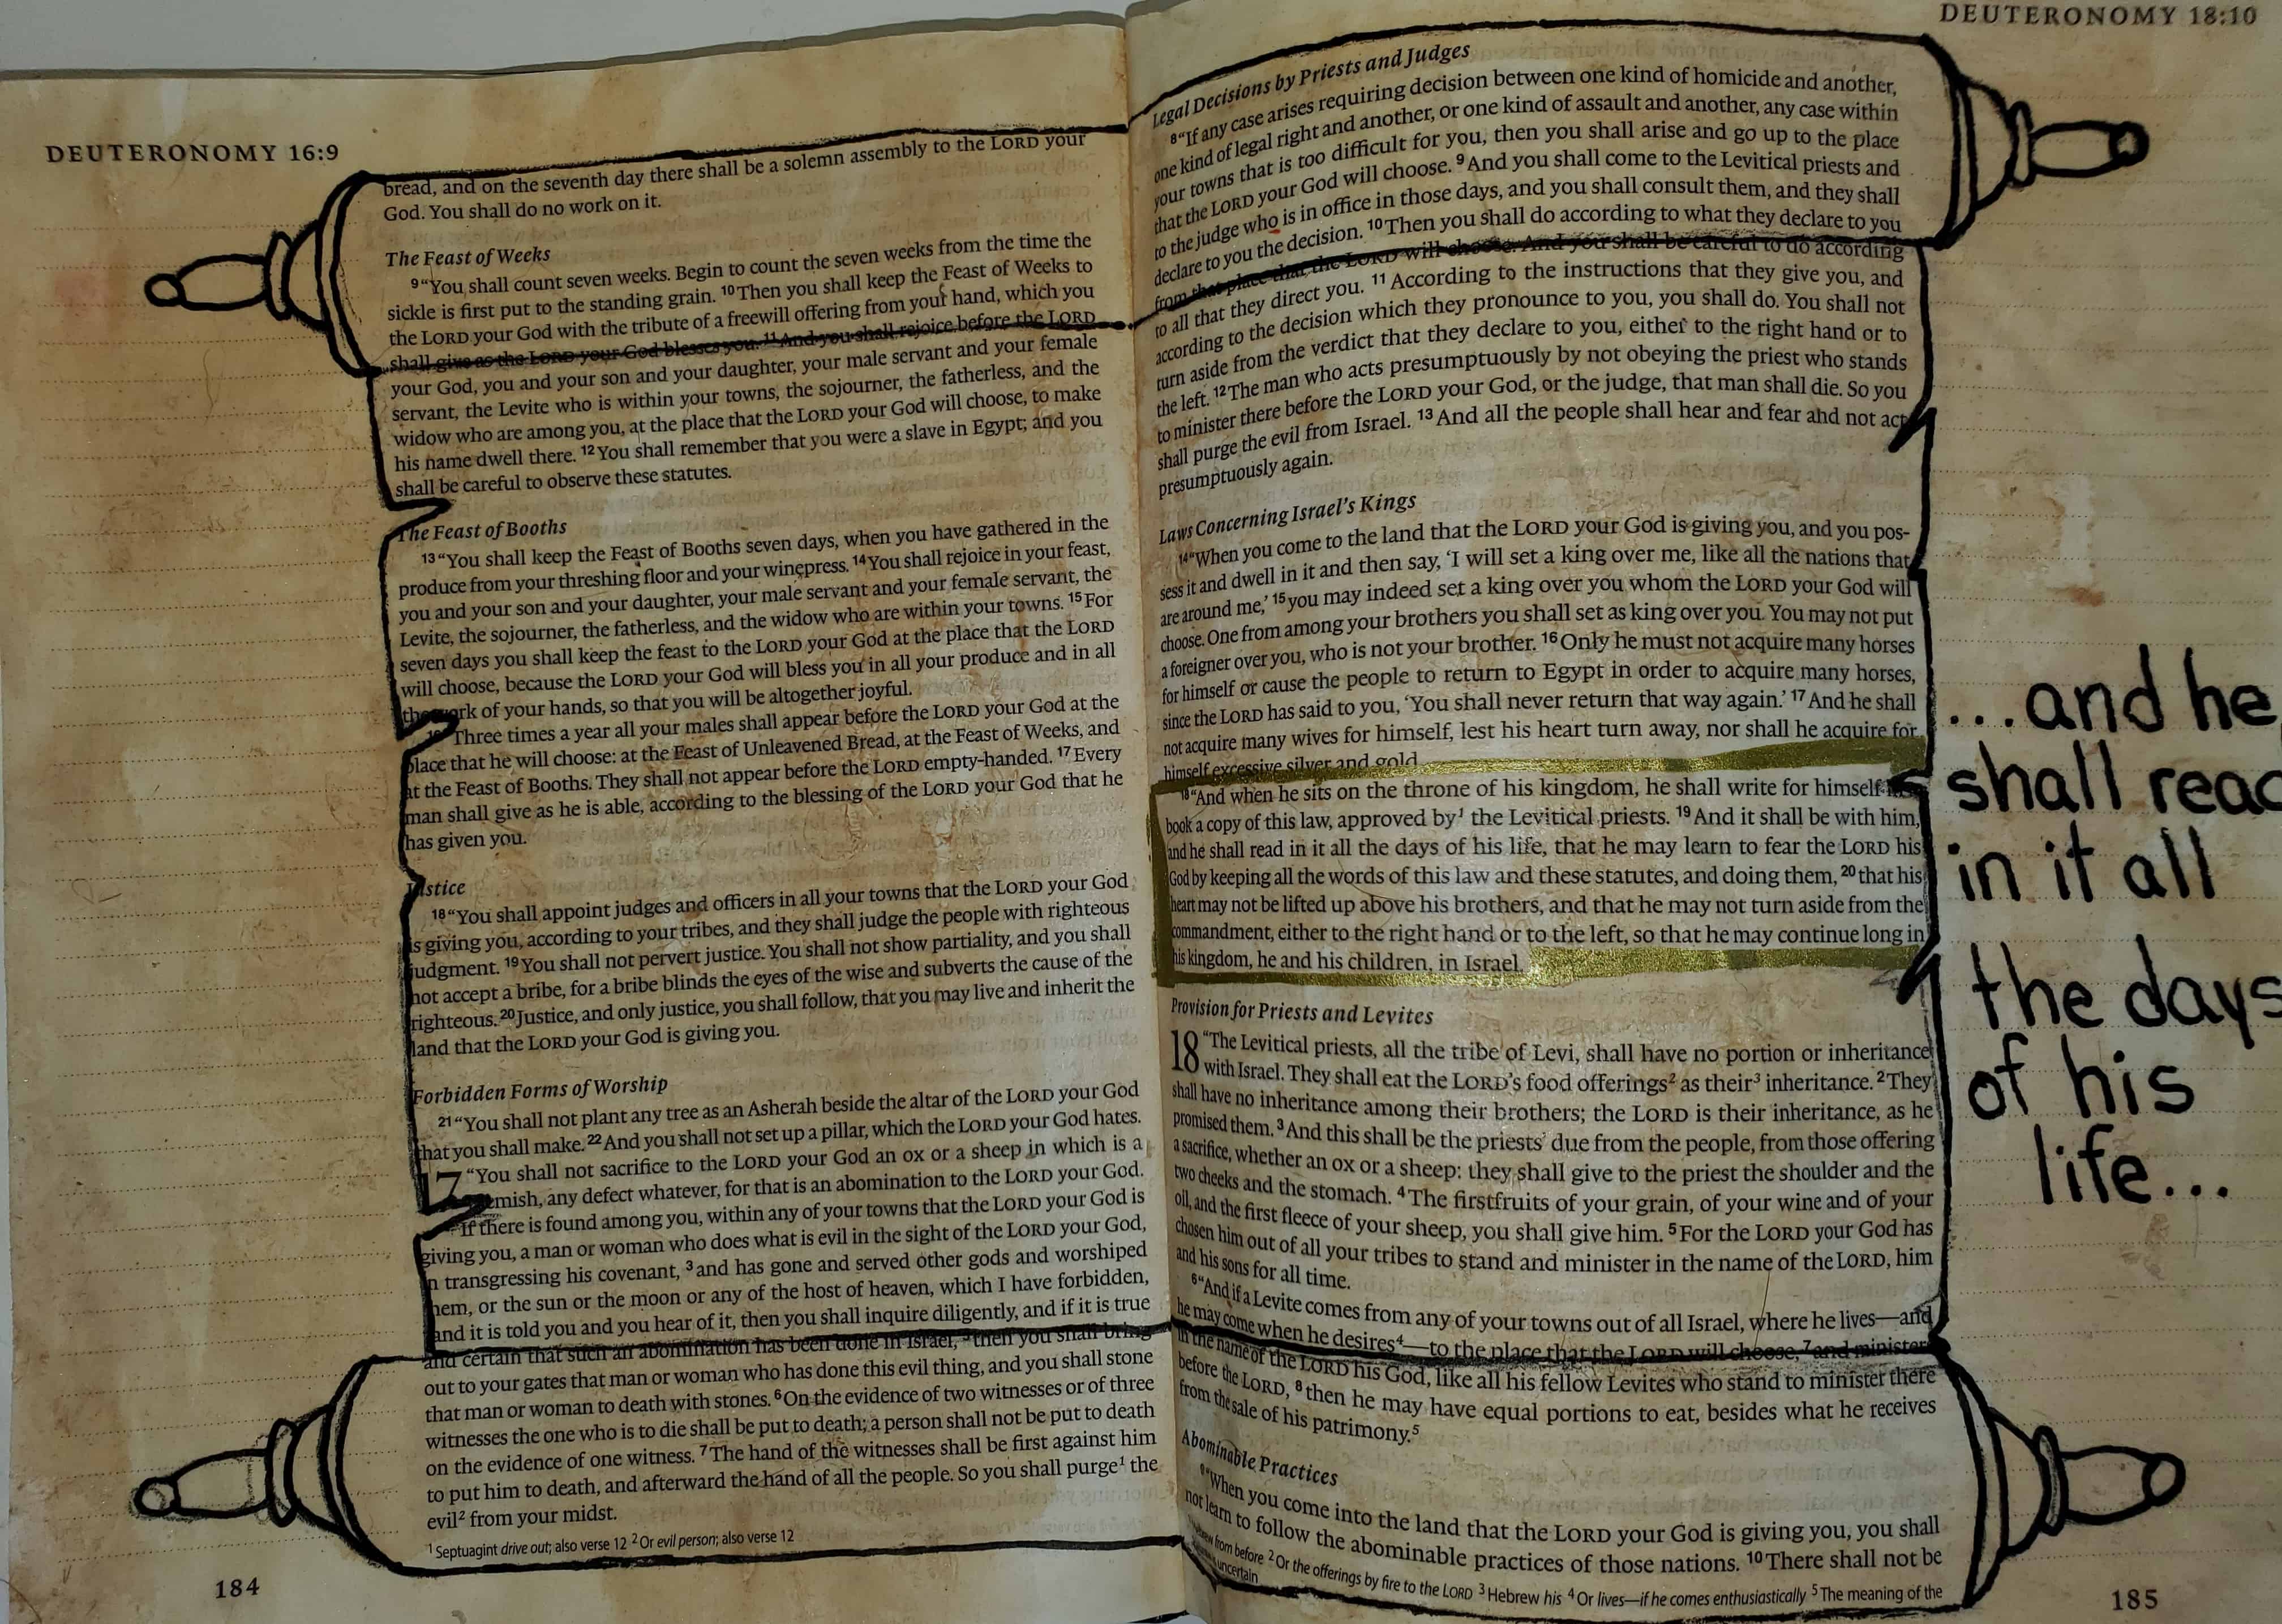 DEUTERONOMY 16:9
bread, and on the seventh day there shall be a solemn assembly to the LORD your
God. You shall do no work on it.
The Feast of Weeks
9 “You shall count seven weeks. Begin to count the seven weeks from the time the
sickle is first put to the standing grain. 10 Then you shall keep the Feast of Weeks to
the LORD your God with the tribute of a freewill offering from your hand, which you
shall give as the LORD your God blesses you. 11 And you shall rejoice before the LORD
your God, you and your son and your daughter, your male servant and your female
servant, the Levite who is within your towns, the sojourner, the fatherless, and the
widow who are among you, at the place that the LORD your God will choose, to make
his name dwell there. 12 You shall remember that you were a slave in Egypt; and you
shall be careful to observe these statutes.
The Feast of Booths
13 “You shall keep the Feast of Booths seven days, when you have gathered in the
produce from your threshing floor and your winepress. 14 You shall rejoice in your feast,
you and your son and your daughter, your male servant and your female servant, the
Levite, the sojourner, the fatherless, and the widow who are within your towns. 15 For
seven days you shall keep the feast to the LORD your God at the place that the LORD
will choose, because the LORD your God will bless you in all your produce and in all
the work of your hands, so that you will be altogether joyful.
Three times a year all your males shall appear before the LORD your God at the
place that he will choose: at the Feast of Unleavened Bread, at the Feast of Weeks, and
at the Feast of Booths. They shall not appear before the LORD empty-handed. 17 Every
man shall give as he is able, according to the blessing of the LORD your God that he
has given you.
Justice
18 “You shall appoint judges and officers in all your towns that the LORD your God
is giving you, according to your tribes, and they shall judge the people with righteous
judgment. 19 You shall not pervert justice. You shall not show partiality, and you shall
not accept a bribe, for a bribe blinds the eyes of the wise and subverts the cause of the
righteous. 20 Justice, and only justice, you shall follow, that you may live and inherit the
land that the LORD your God is giving you.
Forbidden Forms of Worship
21 “You shall not plant any tree as an Asherah beside the altar of the LORD your God
that you shall make. 22 And you shall not set up a pillar, which the LORD your God hates.
17 “You shall not sacrifice to the LORD your God an ox or a sheep in which is a
emish, any defect whatever, for that is an abomination to the LORD your God.
If there is found among you, within any of your towns that the LORD your God is
giving you, a man or woman who does what is evil in the sight of the LORD your God,
in transgressing his covenant, 3 and has gone and served other gods and worshiped
them, or the sun or the moon or any of the host of heaven, which I have forbidden,
and it is told you and you hear of it, then you shall inquire diligently, and if it is true
and certain that such an abomination has been done in Israel, 5 then you shall bring
out to your gates that man or woman who has done this evil thing, and you shall stone
that man or woman to death with stones. 6 On the evidence of two witnesses or of three
witnesses the one who is to die shall be put to death; a person shall not be put to death
on the evidence of one witness. 7 The hand of the witnesses shall be first against him
to put him to death, and afterward the hand of all the people. So you shall purge1 the
evil2 from your midst.
1 Septuagint drive out; also verse 12 2 Or evil person; also verse 12
184
DEUTERONOMY 18:10
Legal Decisions by Priests and Judges
8 “If any case arises requiring decision between one kind of homicide and another,
one kind of legal right and another, or one kind of assault and another, any case within
your towns that is too difficult for you, then you shall arise and go up to the place
that the LORD your God will choose. 9 And you shall come to the Levitical priests and
to the judge who is in office in those days, and you shall consult them, and they shall
declare to you the decision. 10 Then you shall do according to what they declare to you
from that place that the LORD will choose. And you shall be careful to do according
to all that they direct you. 11 According to the instructions that they give you, and
according to the decision which they pronounce to you, you shall do. You shall not
turn aside from the verdict that they declare to you, either to the right hand or to
the left. 12 The man who acts presumptuously by not obeying the priest who stands
to minister there before the LORD your God, or the judge, that man shall die. So you
shall purge the evil from Israel. 13 And all the people shall hear and fear and not act
presumptuously again.
Laws Concerning Israel’s Kings
14 “When you come to the land that the LORD your God is giving you, and you pos-
sess it and dwell in it and then say, ‘I will set a king over me, like all the nations that
are around me,’ 15 you may indeed set a king over you whom the LORD your God will
choose. One from among your brothers you shall set as king over you. You may not put
a foreigner over you, who is not your brother. 16 Only he must not acquire many horses
for himself or cause the people to return to Egypt in order to acquire many horses,
since the LORD has said to you, ‘You shall never return that way again.’ 17 And he shall
not acquire many wives for himself, lest his heart turn away, nor shall he acquire for
himself excessive silver and gold
18 “And when he sits on the throne of his kingdom, he shall write for himself
book a copy of this law, approved by1 the Levitical priests. 19 And it shall be with him,
and he shall read in it all the days of his life, that he may learn to fear the LORD his
God by keeping all the words of this law and these statutes, and doing them, 20 that his
heart may not be lifted up above his brothers, and that he may not turn aside from the
commandment, either to the right hand or to the left, so that he may continue long in
his kingdom, he and his children, in Israel.
Provision for Priests and Levites
18 “The Levitical priests, all the tribe of Levi, shall have no portion or inheritance
with Israel. They shall eat the LORD’s food offerings2 as their3 inheritance. 2 They
shall have no inheritance among their brothers; the LORD is their inheritance, as he
promised them. 3 And this shall be the priests’ due from the people, from those offering
a sacrifice, whether an ox or a sheep: they shall give to the priest the shoulder and the
two cheeks and the stomach. 4 The firstfruits of your grain, of your wine and of your
oil, and the first fleece of your sheep, you shall give him. 5 For the LORD your God has
chosen him out of all your tribes to stand and minister in the name of the LORD, him
and his sons for all time.
6 “And if a Levite comes from any of your towns out of all Israel, where he lives—and
he may come when he desires4—to the place that the LORD will choose, 7 and minister
in the name of the LORD his God, like all his fellow Levites who stand to minister there
before the LORD, 8 then he may have equal portions to eat, besides what he receives
from the sale of his patrimony.5
Abominable Practices
9 “When you come into the land that the LORD your God is giving you, you shall
not learn to follow the abominable practices of those nations. 10 There shall not be
from before 2 Or the offerings by fire to the LORD 3 Hebrew his 4 Or lives—if he comes enthusiastically 5 The meaning of the
uncertain
185
...and he
shall read
in it all
the days
of his
life...